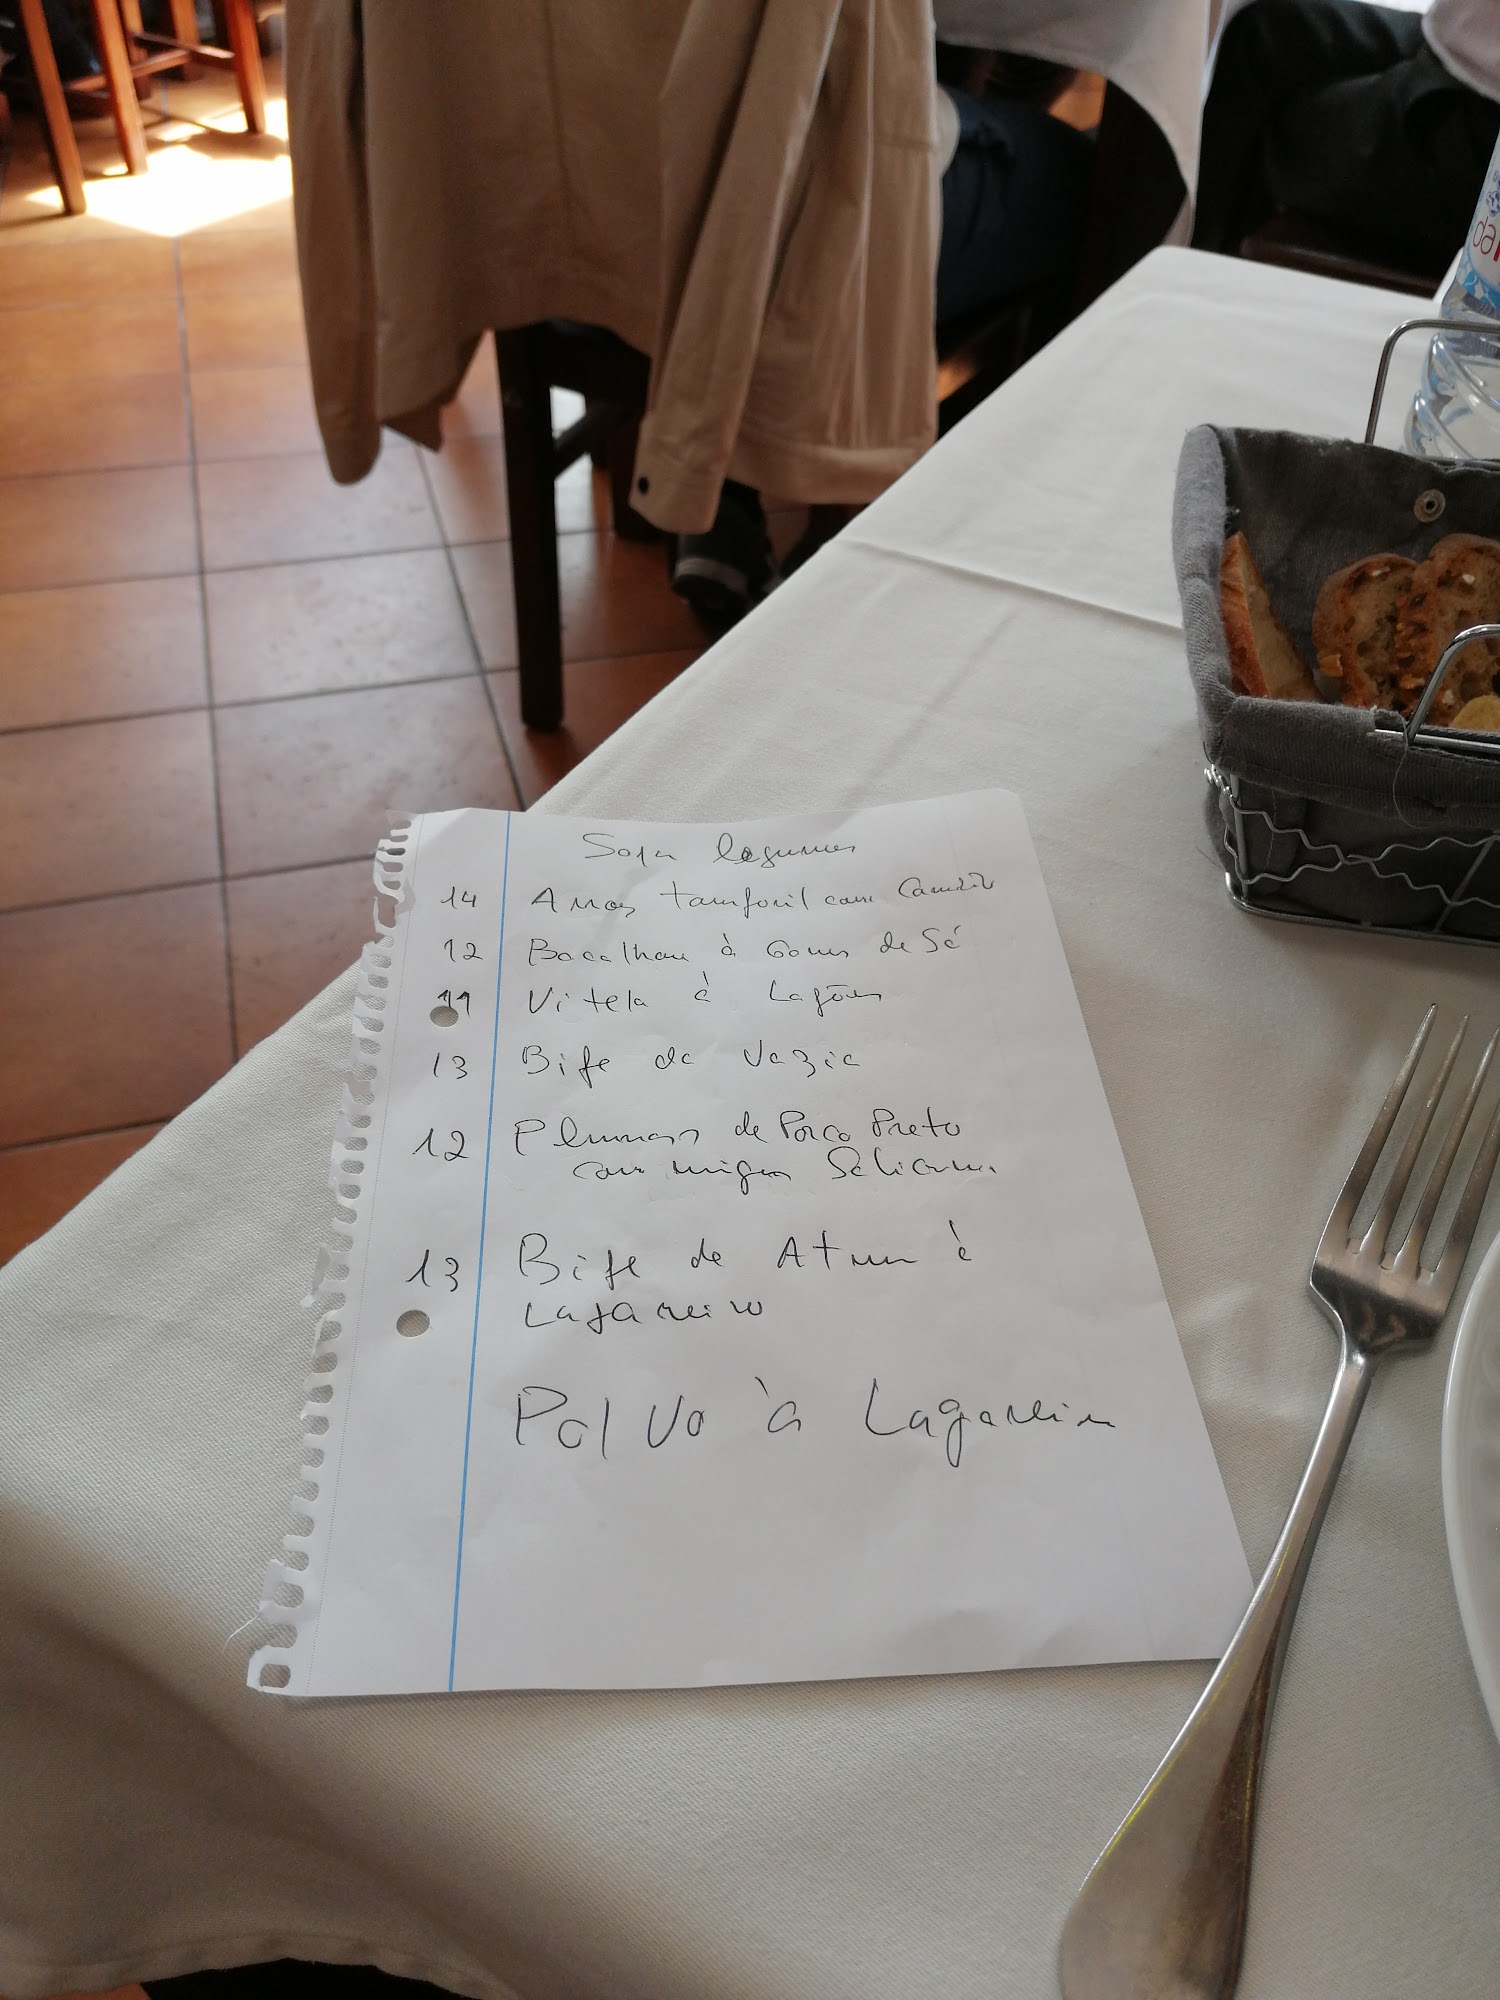 Sopa legumes
14 Arroz tamboril com Camarão
12 Bacalhau à Gomes de Sá
11 Vitela à Lafões
13 Bife da Vazia
12 Plumas de Porco Preto
com migas
13 Bife de Atum à
Lagareiro
Polvo à Lagareiro
da